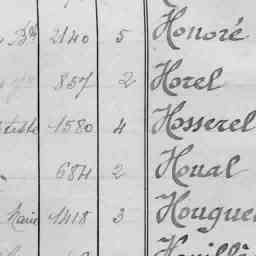 2140 5 Honoré
857 2 Horel
1580 4 Hosserel
684 2 Houal
1418 3 Hougue